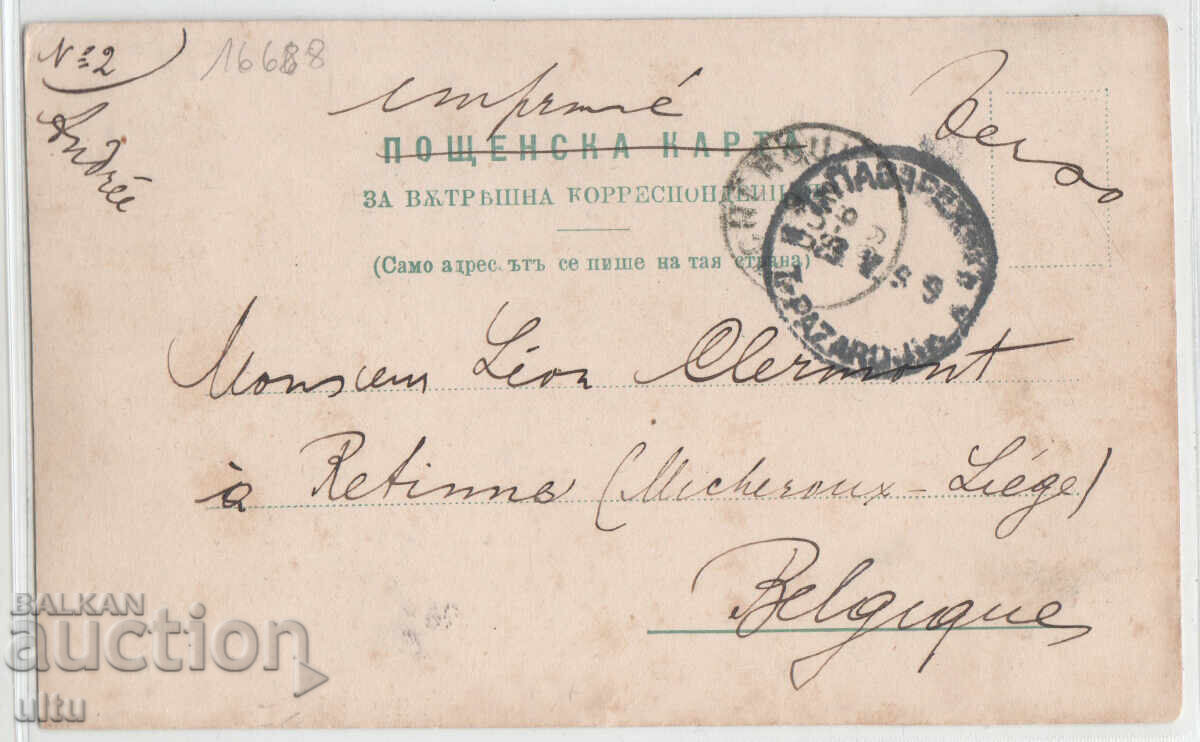 Nº 2
16688
Andrée
imprimé
Verso
ПОЩЕНСКА КАРТА
ЗА ВѪТРѢШНА КОРРЕСПОНДЕНЦИЯ
(Само адрес.ътъ се пише на тая страна)
Т. ПАЗАРДЖИКЪ
T-PAZARDJIK
Monsieur Léon Clermont
à Retinne (Micheroux-Liége)
Belgique
BALKAN
auction
ultu